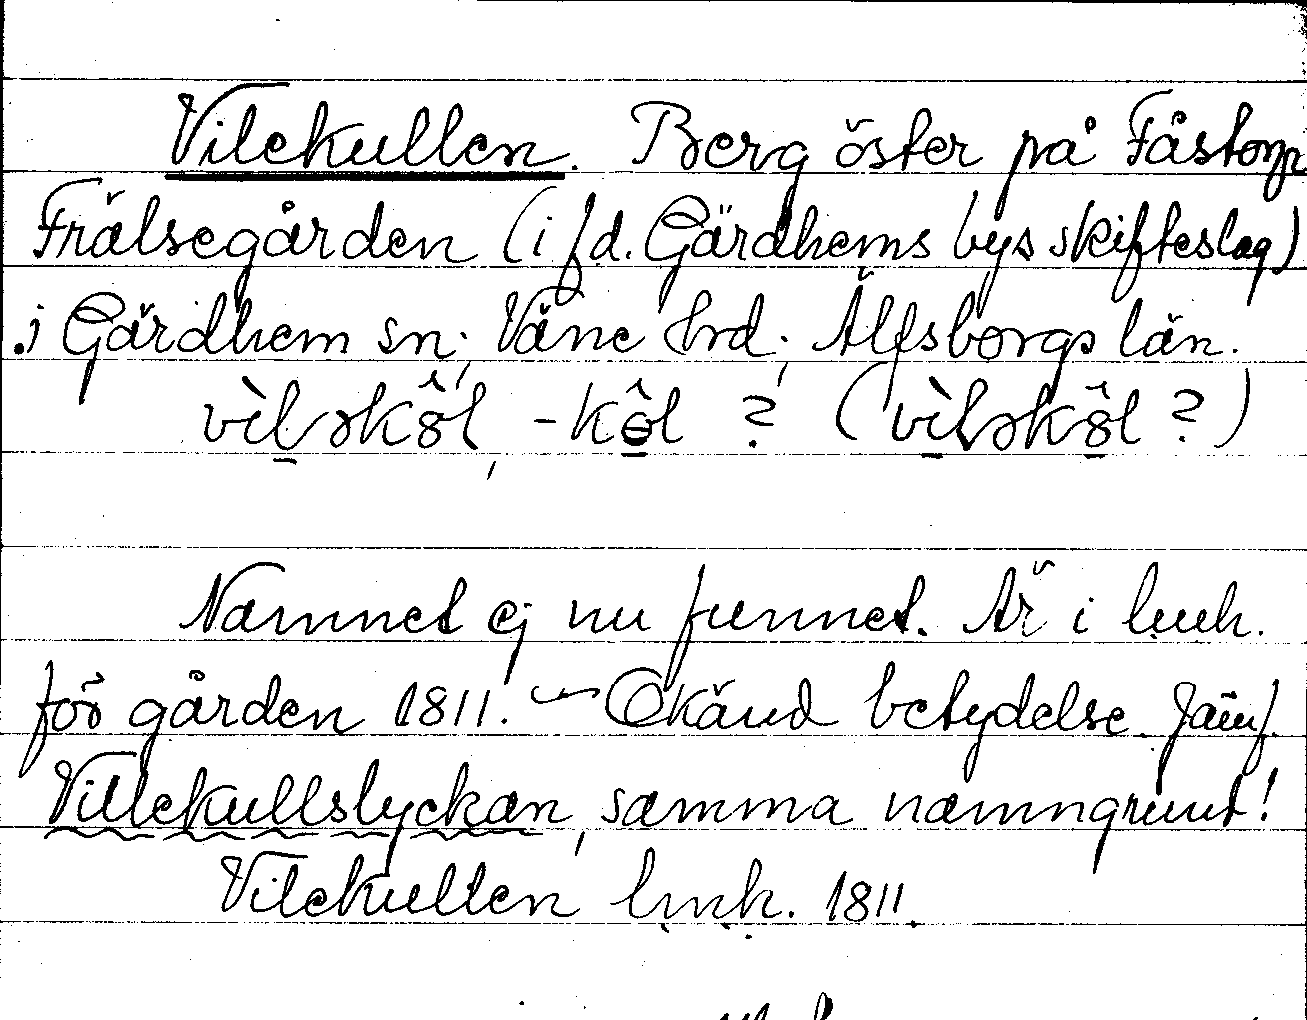 Vilekullen. Berg öster på Fåstorp
Frälsegården (i f.d. Gärdhems bys skifteslag)
i Gärdhem sn, Väne hrd, Älfsborgs län.
Namnet ej nu funnet. Är i lmh.
för gården 1811. — Okänd betydelse. Jämf.
Villekullslyckan, samma namngrund!
Vilekullen lmh. 1811.